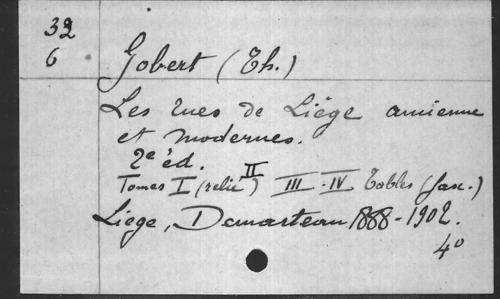 32
6
Gobert (Th.)
Les rues de Liége ancienne
et modernes.
2e éd.
Tomes I (relié) II III - IV Tables (fasc.)
Liege, Demarteau 1888-1902.
4o